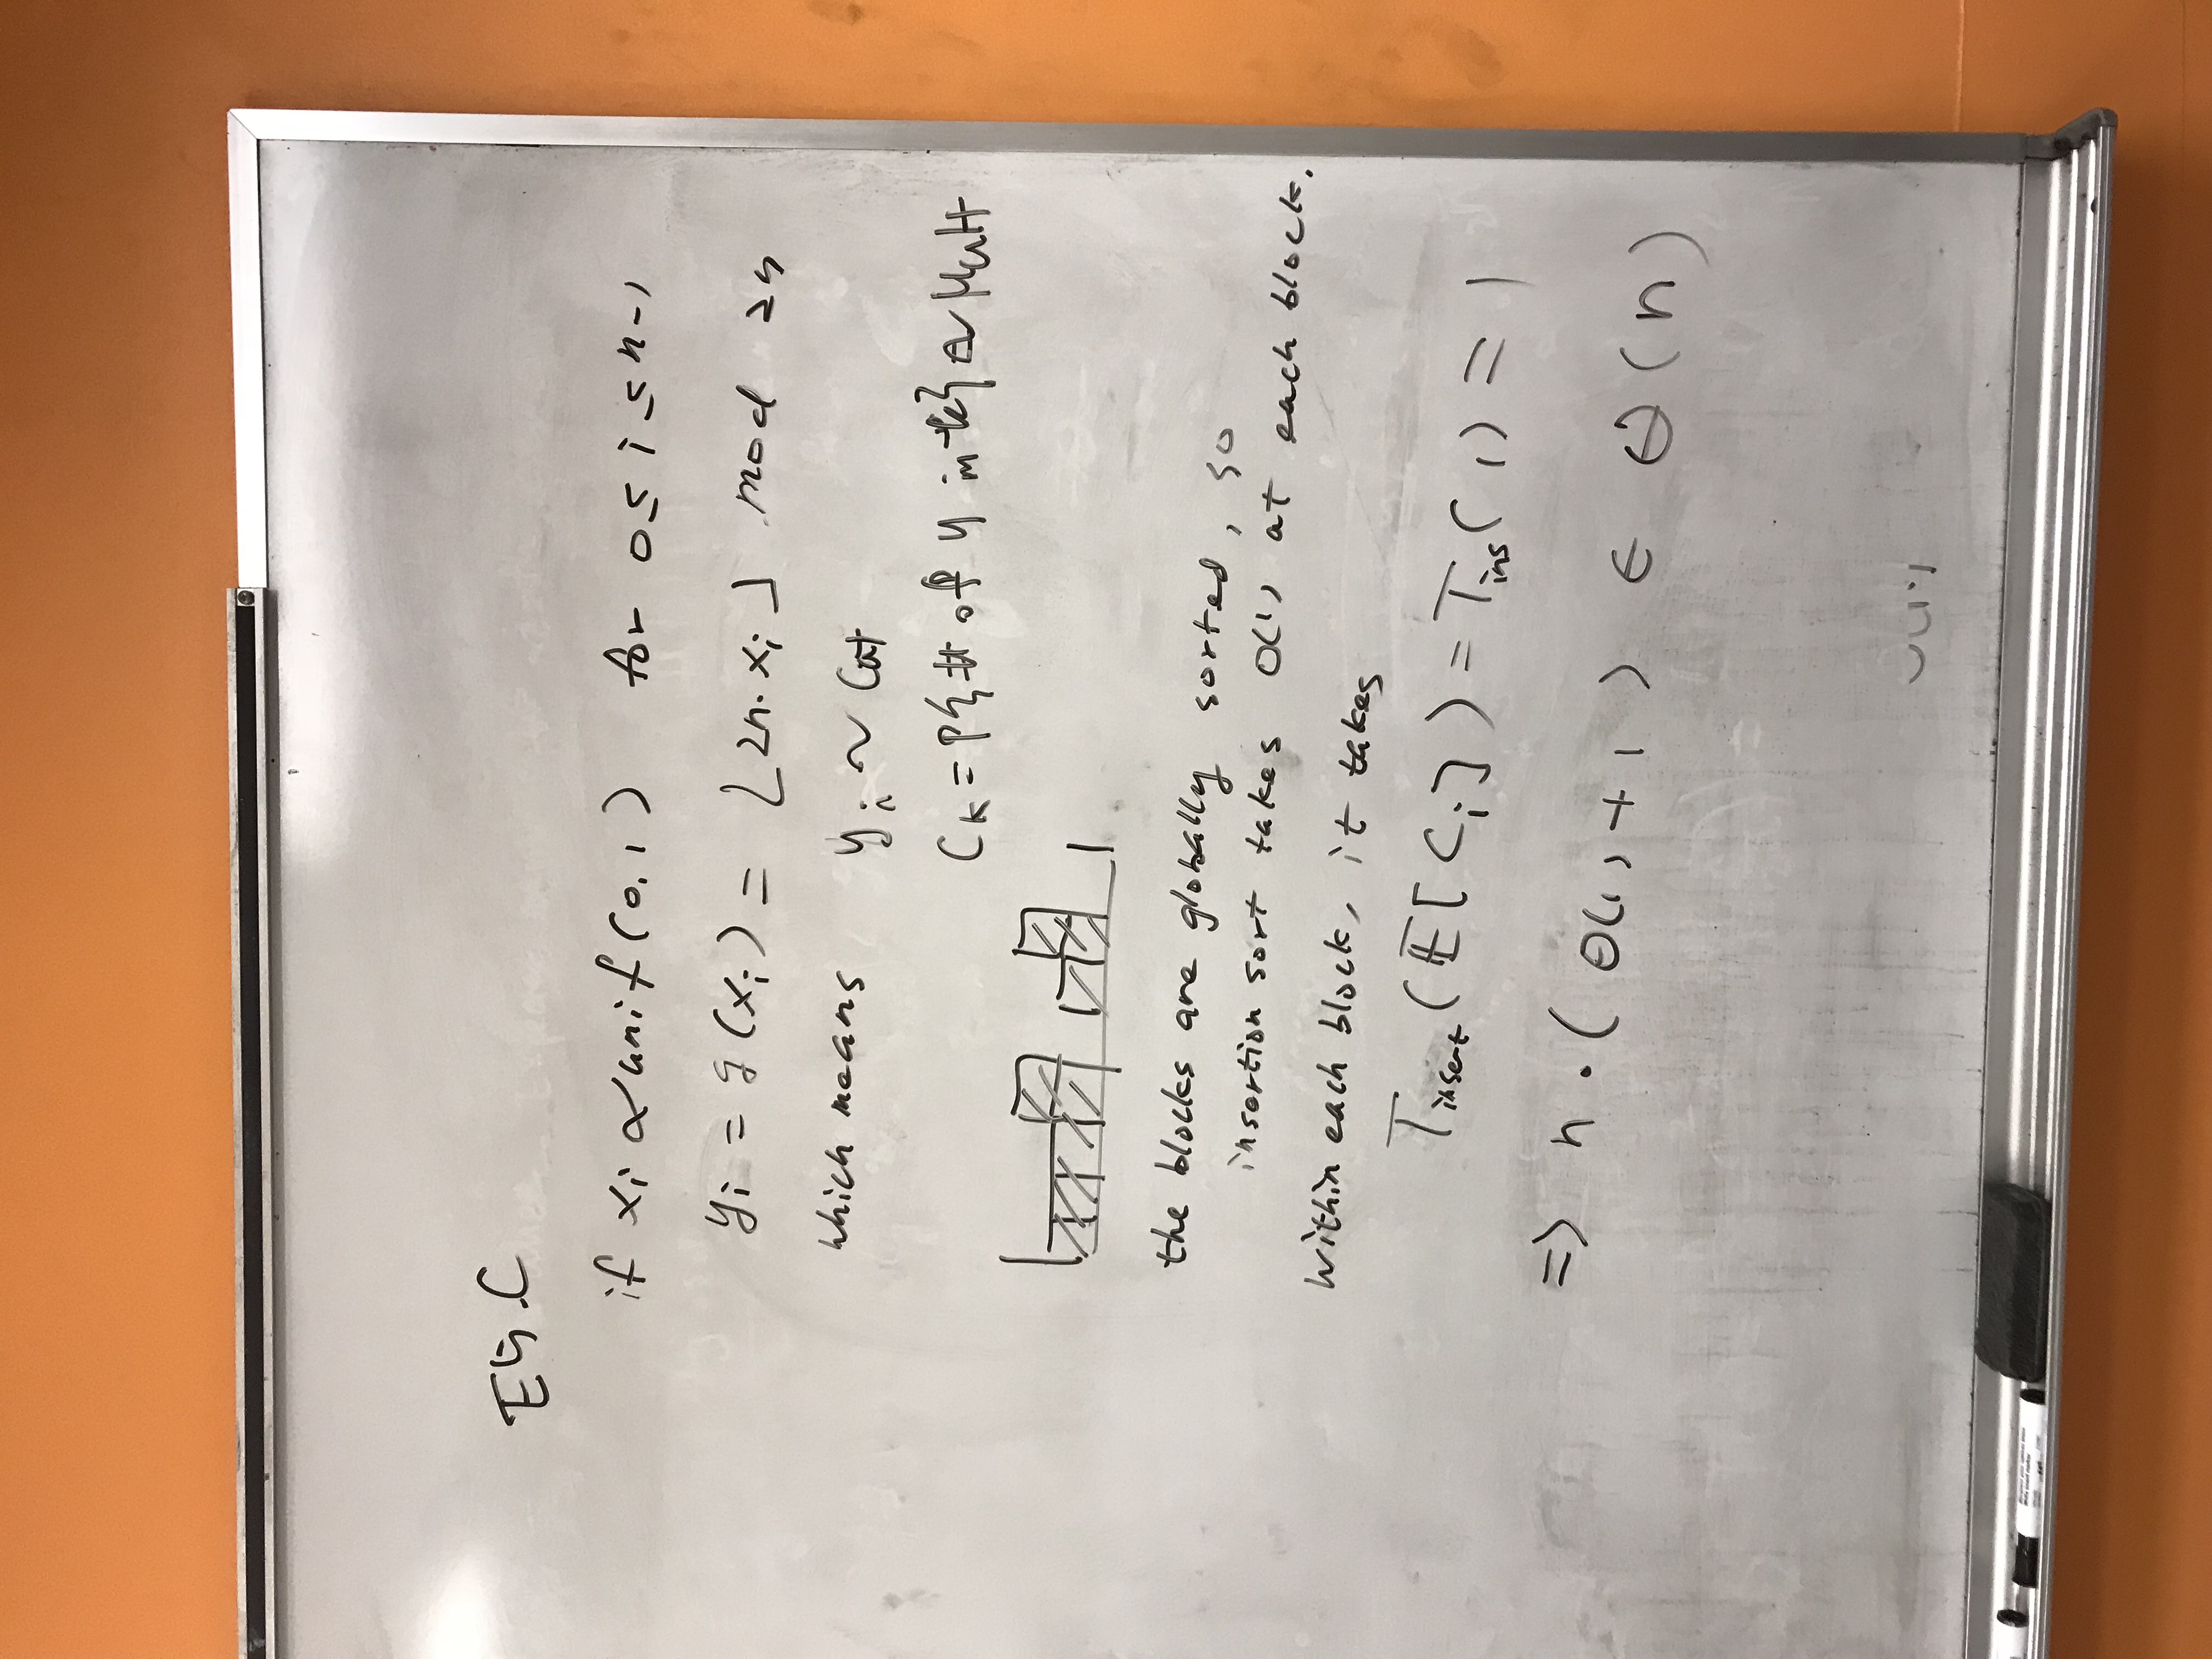 E5.C
if xi ∝ unif(0,1) for 0 ≤ i ≤ n-1
yi = g(xi) = ⌊2n·xi⌋ mod 2n
which means yi ~ Cat
CK = P{# of y in k} ~ Mult
the blocks are globally sorted, so
insertion sort takes O(1) at each block.
Within each block, it takes
Tinsert(E[Ci]) = Tins(1) = 1
=> n·(O(1)+1) ∈ Θ(n)